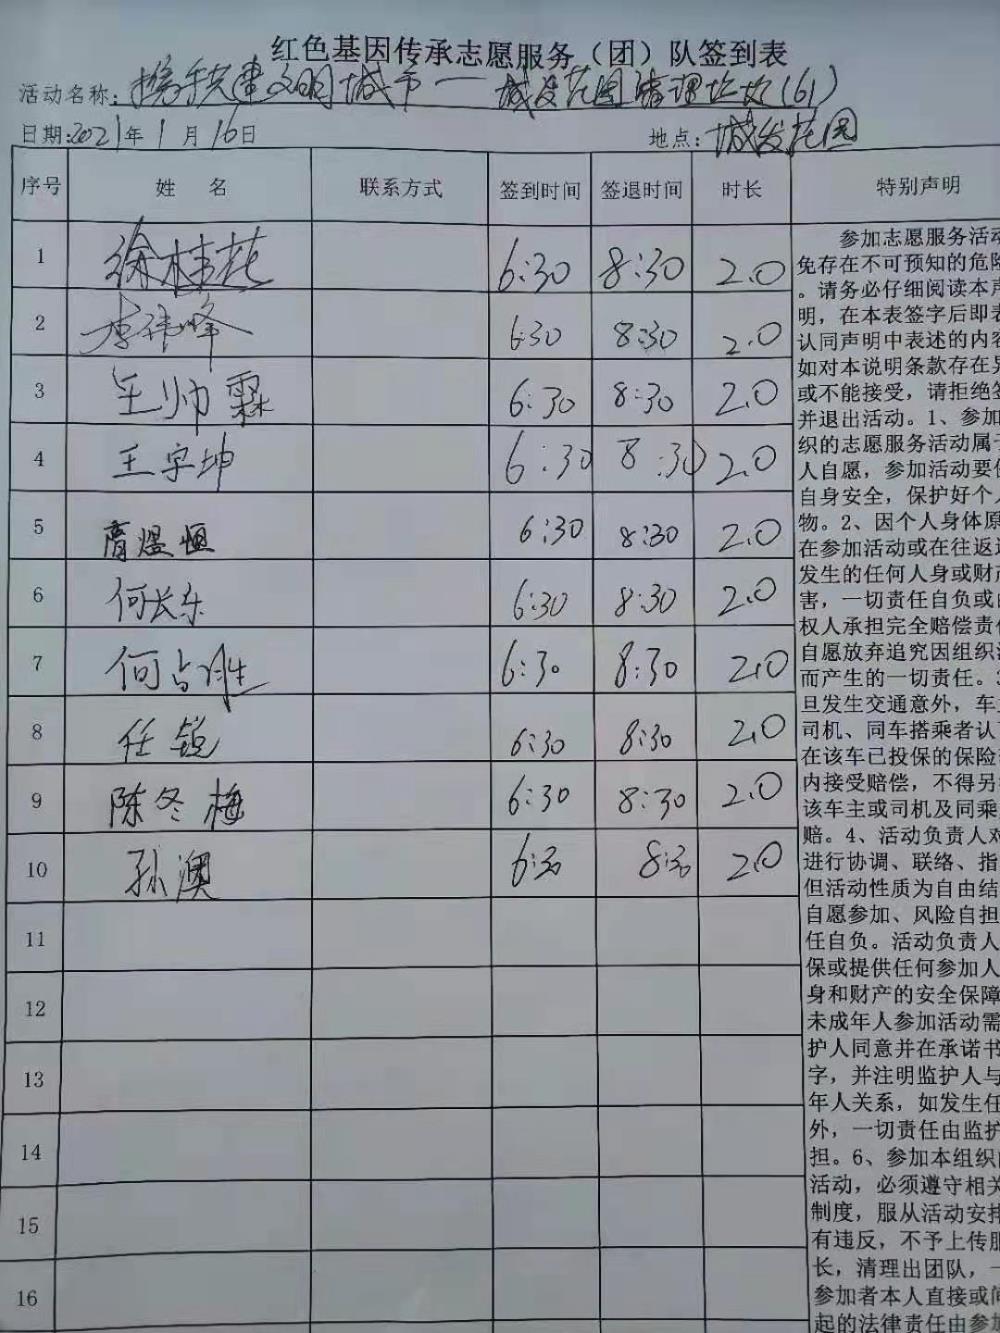 红色基因传承志愿服务（团）队签到表
活动名称：携手共建文明城市——城发花园清理垃圾(61)
日期:2021年1月16日 地点：城发花园
序号 姓 名 联系方式 签到时间 签退时间 时长 特别声明
1 徐桂花 6:30 8:30 2.0
2 李伟峰 6:30 8:30 2.0
3 王帅霖 6:30 8:30 2.0
4 王宇坤 6:30 8:30 2.0
5 煜恒 6:30 8:30 2.0
6 何长东 6:30 8:30 2.0
7 何占胜 6:30 8:30 2.0
8 任锐 6:30 8:30 2.0
9 陈冬梅 6:30 8:30 2.0
10 孙澳 6:30 8:30 2.0
11
12
13
14
15
16
参加志愿服务活动
免存在不可预知的危险
。请务必仔细阅读本声
明，在本表签字后即表
认同声明中表述的内容
如对本说明条款存在异
或不能接受，请拒绝签
并退出活动。1、参加
织的志愿服务活动属于
人自愿，参加活动要保
自身安全，保护好个人
物。2、因个人身体原
在参加活动或在往返途
发生的任何人身或财产
害，一切责任自负或由
权人承担完全赔偿责任
自愿放弃追究因组织活
而产生的一切责任。3
旦发生交通意外，车主
司机、同车搭乘者认可
在该车已投保的保险
内接受赔偿，不得另
该车主或司机及同乘
赔。4、活动负责人对
进行协调、联络、指
但活动性质为自由结
自愿参加、风险自担
任自负。活动负责人
保或提供任何参加人
身和财产的安全保障
未成年人参加活动需
护人同意并在承诺书
字，并注明监护人与
年人关系，如发生任
外，一切责任由监护
担。6、参加本组织
活动，必须遵守相关
制度，服从活动安排
有违反，不予上传服
长，清理出团队，一
参加者本人直接或间
起的法律责任由参加